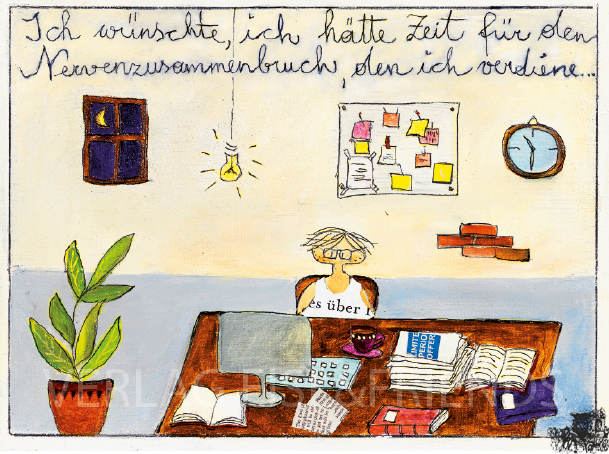 Ich wünschte, ich hätte Zeit für den
Nervenzusammenbruch, den ich verdiene...
es über
LIMITED
PERIOD
OFFER
VERLAG &FRIENDS